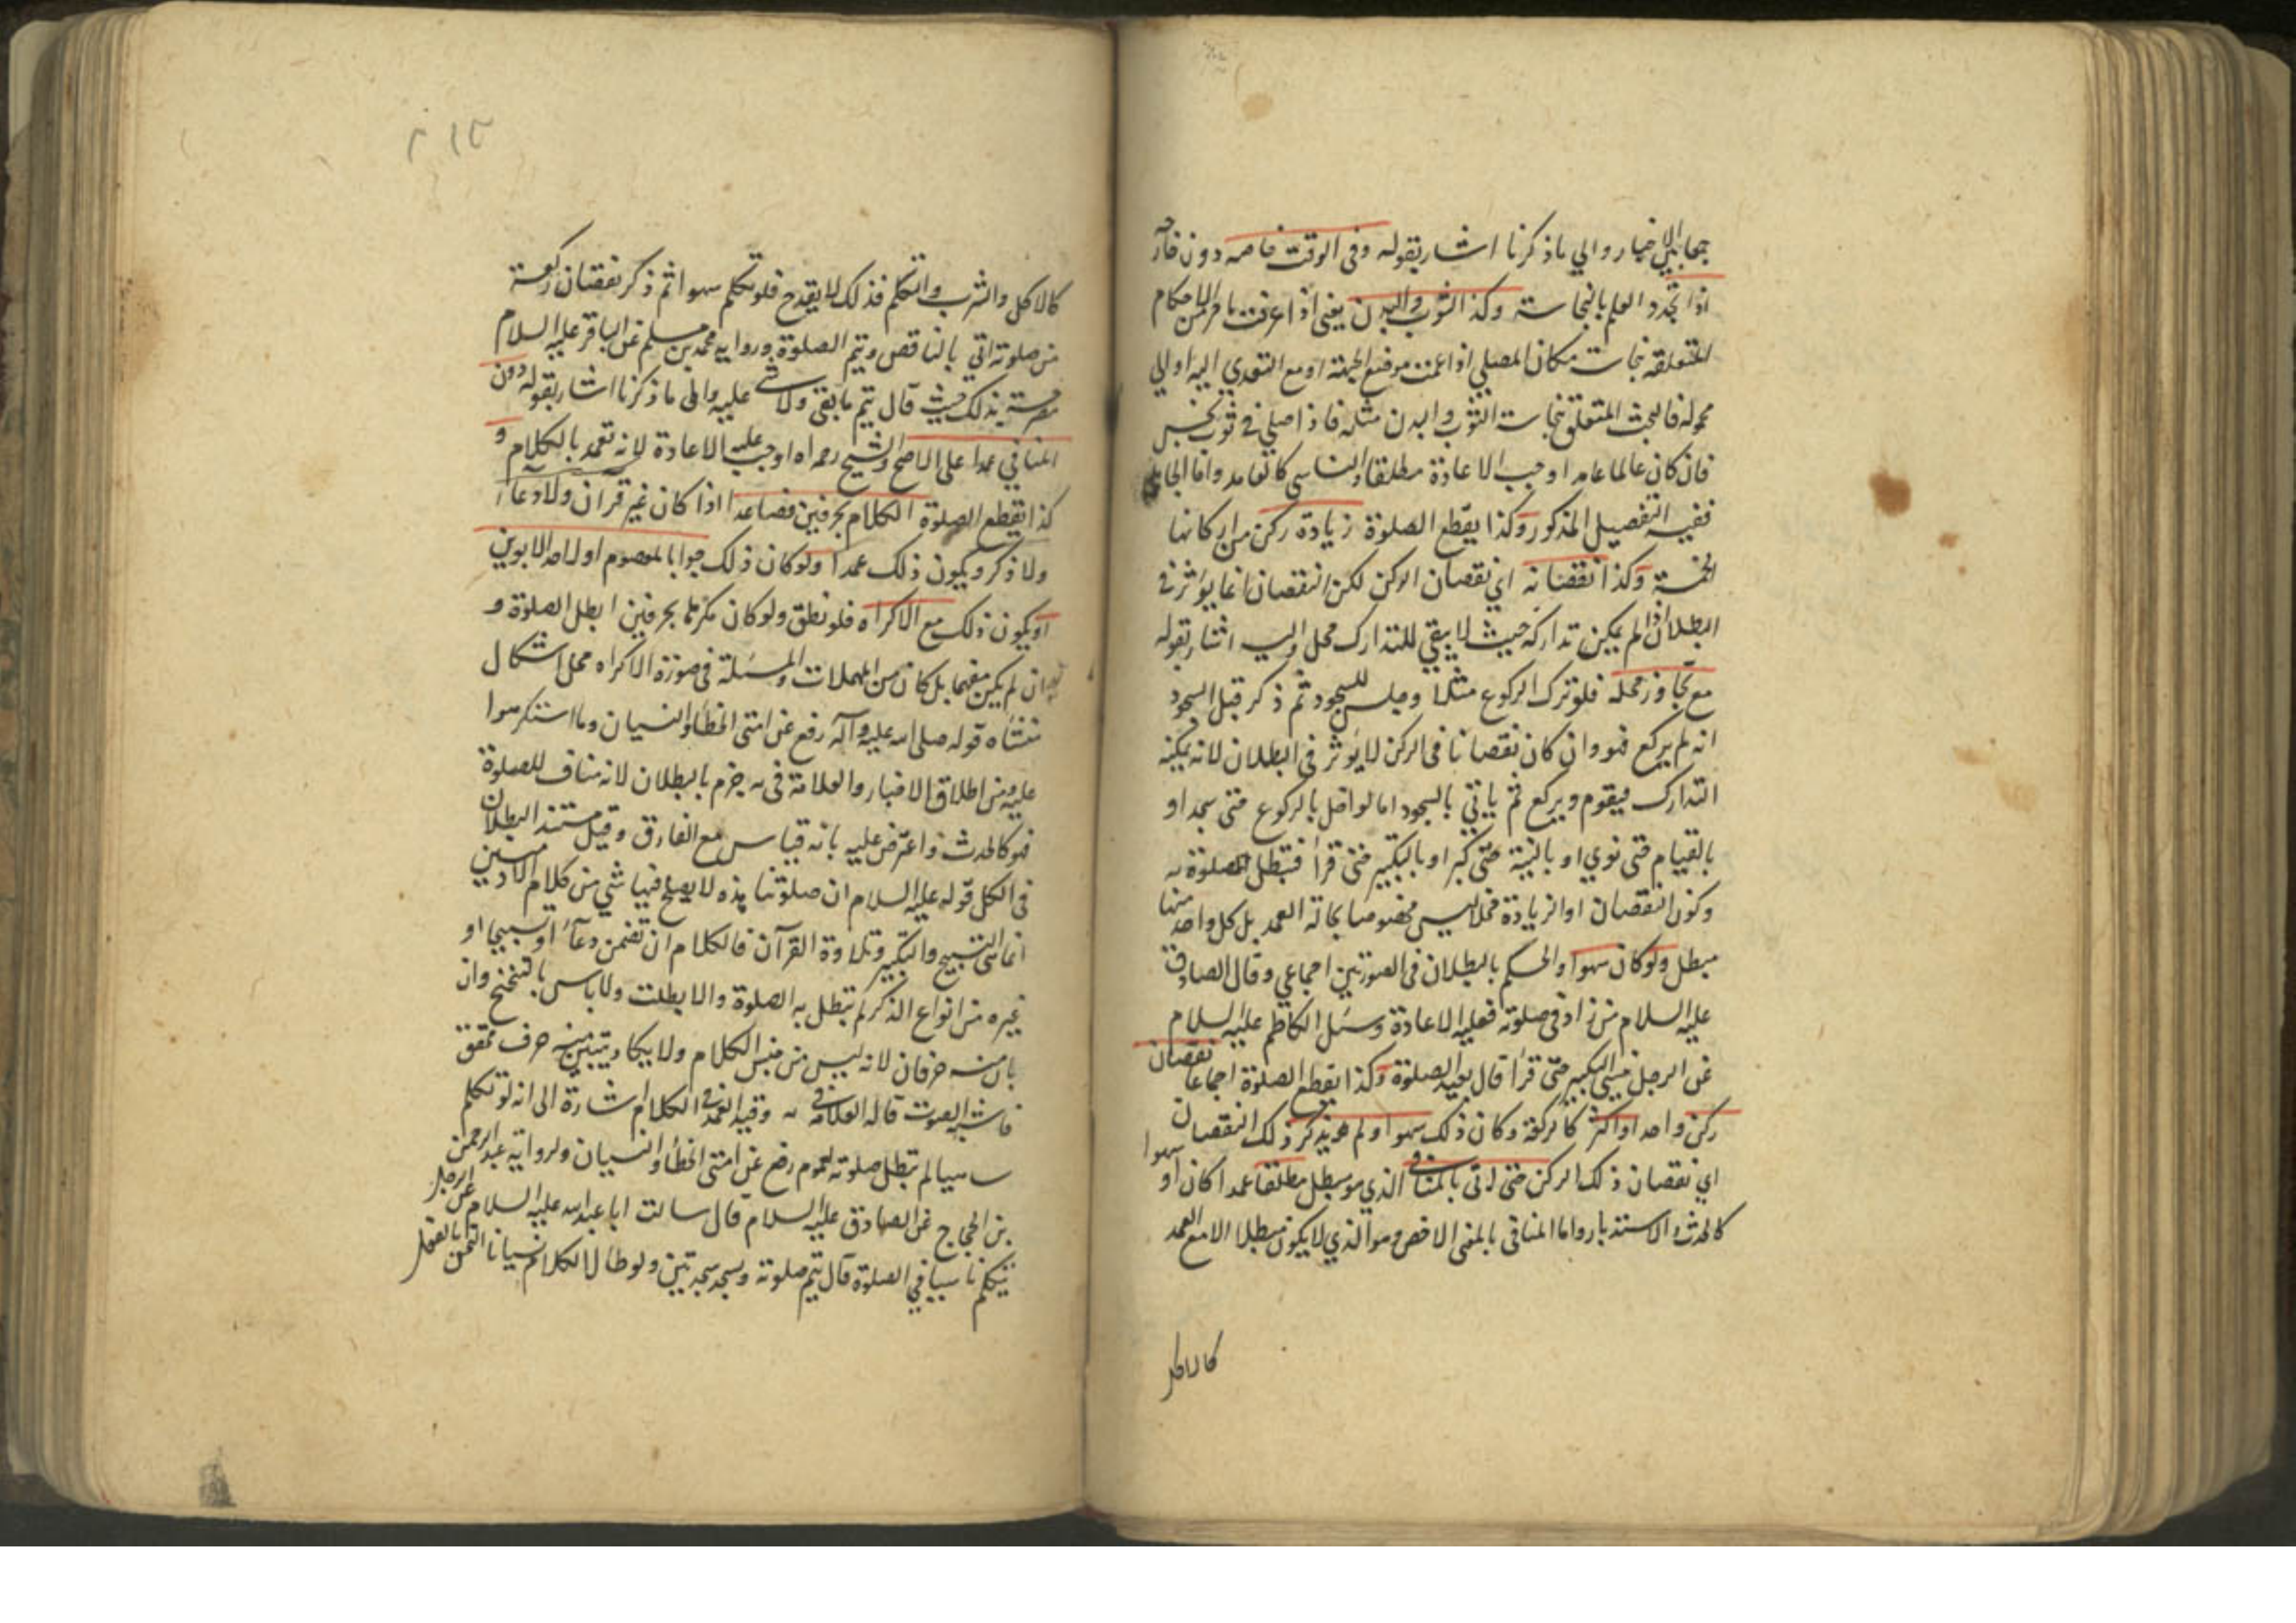 جمعا بين الاخبار والي ما ذكرنا اشار بقوله وفى الوقت خاصه دون خارجه
اذا تجدد العلم بالنجاسة وكذا الثوب والبدن يعنى اذا عرفت ما مر من الاحكام
المتعلقه بنجاسة مكان المصلي اذا عمت موضع الجبهة او مع التعدي اليه او الي
محموله فالبحث المتعلق بنجاسة الثوب والبدن مثله فاذا صلي في ثوب نجس
فان كان عالما عامدا وجب الاعادة مطلقا والناسي كالعامد واما الجاهل
ففيه التفصيل المذكور وكذا يقطع الصلوة زيادة ركن من اركانها
الخمسة وكذا نقصانه اي نقصان الركن لكن النقصان انما يؤثر في
البطلان اذا لم يمكن تداركه حيث لا يبقي للتدارك محل واليه اشار بقوله
مع تجاوز محله فلو ترك الركوع مثلا وجلس للسجود ثم ذكر قبل السجود
انه لم يركع فهو وان كان نقصانا فى الركن لا يؤثر في البطلان لانه يمكنه
التدارك فيقوم ويركع ثم ياتي بالسجود اما لو اخل بالركوع حتى سجد او
بالقيام حتى نوي او بالنية حتى كبر او بالتكبير حتى قرأ فتبطل الصلوة به
وكون النقصان او الزيادة مخلا ليس مخصوصا بحالة العمد بل كل واحد منهما
مبطل ولو كان سهوا والحكم بالبطلان فى الصورتين اجماعي وقال الصادق
عليه السلام من زاد في صلوته فعليه الاعادة وسئل الكاظم عليه السلام
عن الرجل نسي التكبير حتى قرأ قال يعيد الصلوة وكذا يقطع الصلوة اجماعا نقصان
ركن واحد او اكثر كالركعة وكان ذلك سهوا ولم يذكر ذلك النقصان
اي نقصان ذلك الركن حتى اتى بالمنافى الذي هو مبطل مطلقا عمدا كان او سهوا
كالحدث والاستدبار واما المنافى بالمعنى الاخص وهو الذي لا يكون مبطلا الا مع العمد
كالاكل
كالاكل والشرب والتكلم فذلك لا يقدح فلو تكلم سهوا ثم ذكر نقصان ركعة
من صلوته اتي بالناقص ويتم الصلوة ورواية محمد بن مسلم عن الباقر عليه السلام
مصرحة بذلك حيث قال يتم ما بقى ولا شي عليه والى ما ذكرنا اشار بقوله دون
المنافي عمدا على الاصح والشيخ رحمه اه اوجب عليه الاعادة لانه تعمد بالكلام و
كذا يقطع الصلوة الكلام بحرفين فصاعدا اذا كان غير قرآن ولا دعاء
ولا ذكر ويكون ذلك عمدا ولو كان ذلك جوابا لمعصوم او لاحد الابوين
او يكون ذلك مع الاكراه فلو نطق ولو كان مكرها بحرفين ابطل الصلوة و
ان لم يكن مفهما بل كان من المهملات والمسئلة فى صورة الاكراه محل اشكال
منشأه قوله صلى اسه عليه وآله رفع عن امتى الخطأ والنسيان وما استكرهوا
عليه ومن اطلاق الاخبار والعلامة فى يه جزم بالبطلان لانه مناف للصلوة
فهو كالحدث واعترض عليه بانه قياس مع الفارق وقيل مستند البطلان
فى الكل قوله عليه السلام ان صلوتنا هذه لا يصلح فيها شي من كلام الآدميين
انما هى التسبيح والتكبير وتلاوة القرآن فالكلام ان تضمن دعاء او تسبيحا او
غيره من انواع الذكر لم تبطل به الصلوة والا بطلت ولا باس بالتنحنح وان
بان منه حرفان لانه ليس من جنس الكلام ولا يكاد يتبين منه حرف محقق
فاشبه الصوت قاله العلامه فى يه وقيد العمد في الكلام اشارة الى انه لو تكلم
ساهيا لم تبطل صلوته لعموم رفع عن امتى الخطأ والنسيان ولرواية عبد الرحمن
بن الحجاج عن الصادق عليه السلام قال سالت ابا عبد اسه عليه السلام عن الرجل
يتكلم ناسيا في الصلوة قال يتم صلوته ويسجد سجدتين ولو طال الكلام نسيانا التحق بالفعل